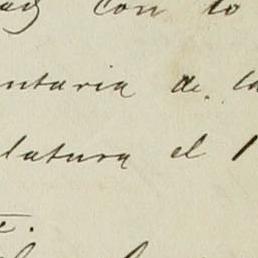 con lo
ntaria de la
latura el 1